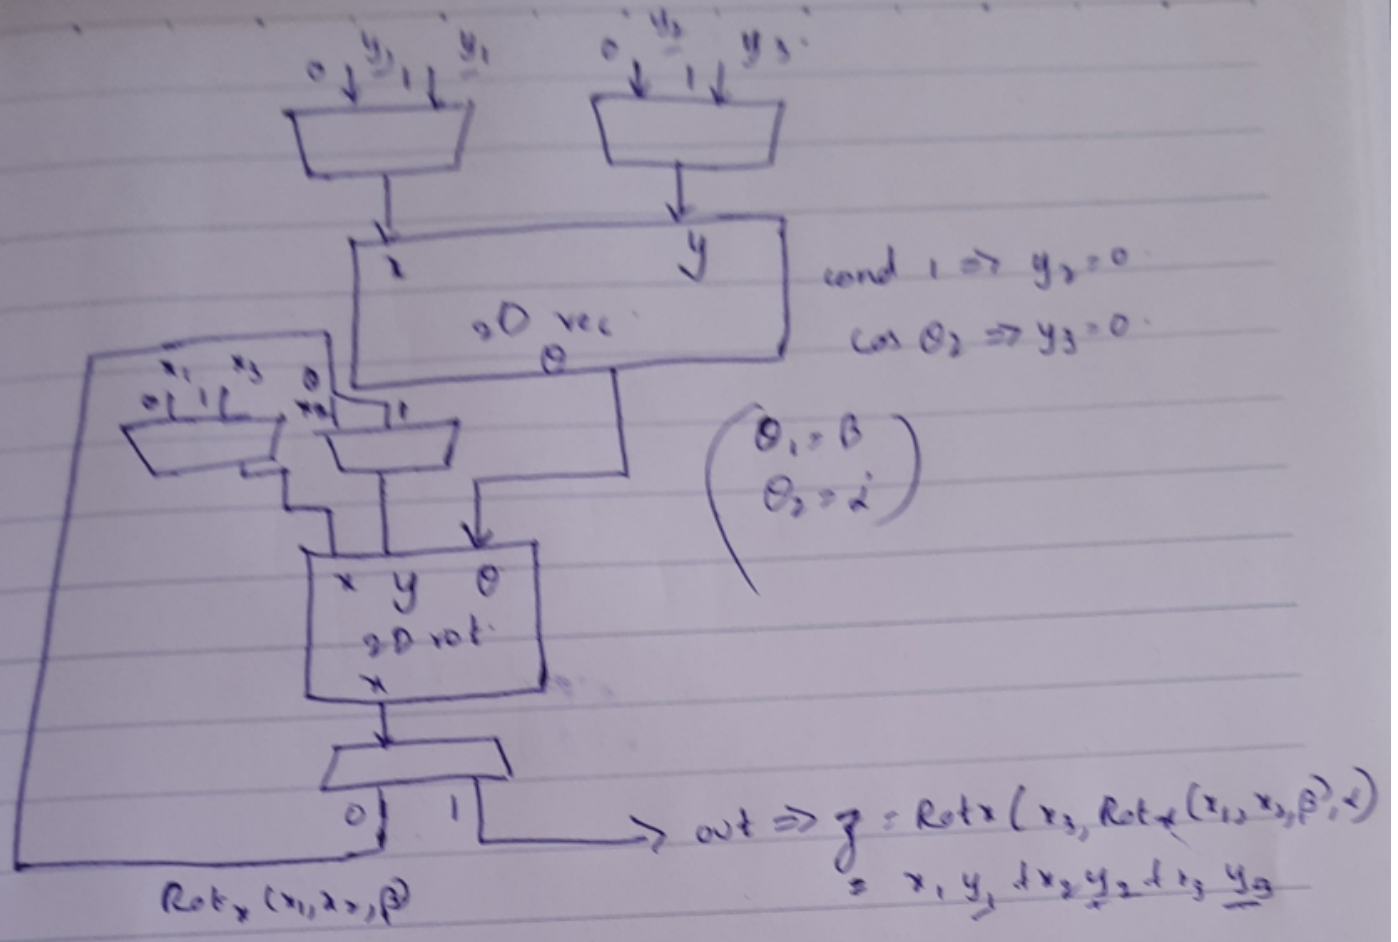 0 y₁ 1 y₁
0 y₂ 1 y₃
x y
2D vec
θ
cond 1 => y₂ = 0
cos θ₂ => y₃ = 0
x₁ x₃
0 1
0 1
x₂
θ₁ = β
θ₂ = α
x y θ
2D rot
x
0 1
out => z = Rotx (x₃, Rotx (x₁, x₂, β), α)
= x₁ y₁ + x₂ y₂ + x₃ y₃
Rotx (x₁, x₂, β)